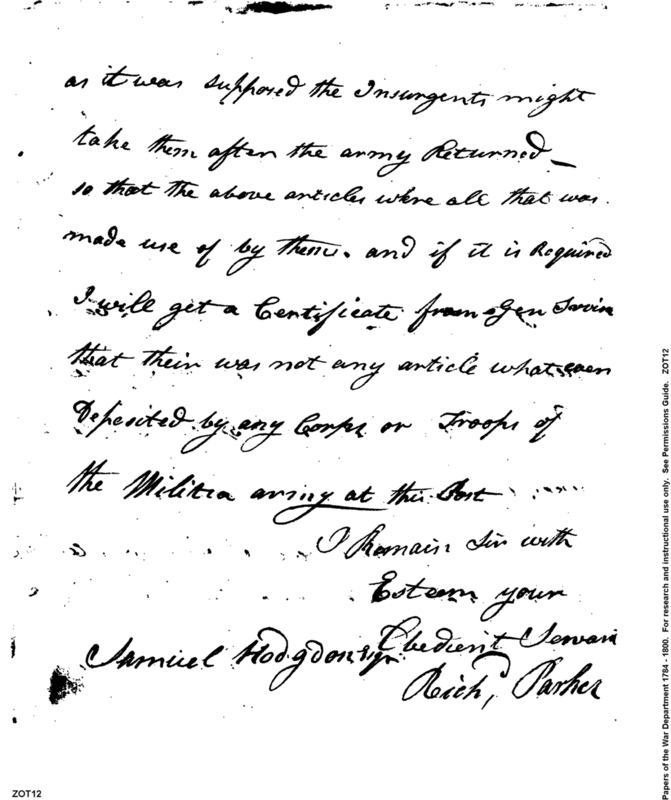 as it was supposed the Insurgents might
take them after the army Returned —
so that the above articles where all that was
made use of by them. and if it is Required
I will get a Certificate from Gen Irvin
that their was not any article what ever
Deposited by any Corps or Troops of
the Militia army at this Post
I Remain Sir with
Esteem your
Obedient Servant
Samuel Hodgdon Esqr.
Richd, Parker
ZOT12
Papers of the War Department 1784 - 1800. For research and instructional use only. See Permissions Guide. ZOT12